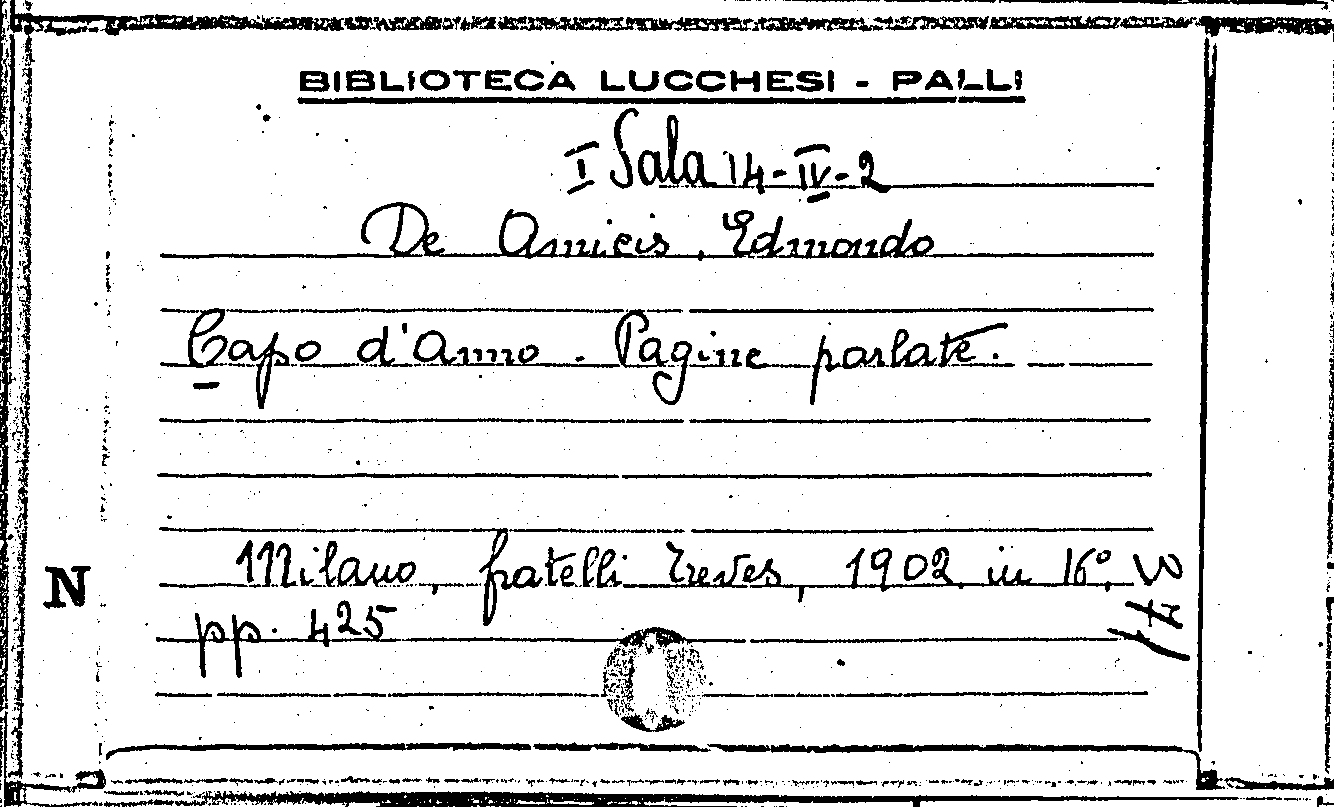 BIBLIOTECA LUCCHESI - PALLI
I Sala 14-IV-2
De Amicis, Edmondo
Capo d'Anno. Pagine parlate.
Milano, fratelli Treves, 1902. in 16°.
pp. 425
N